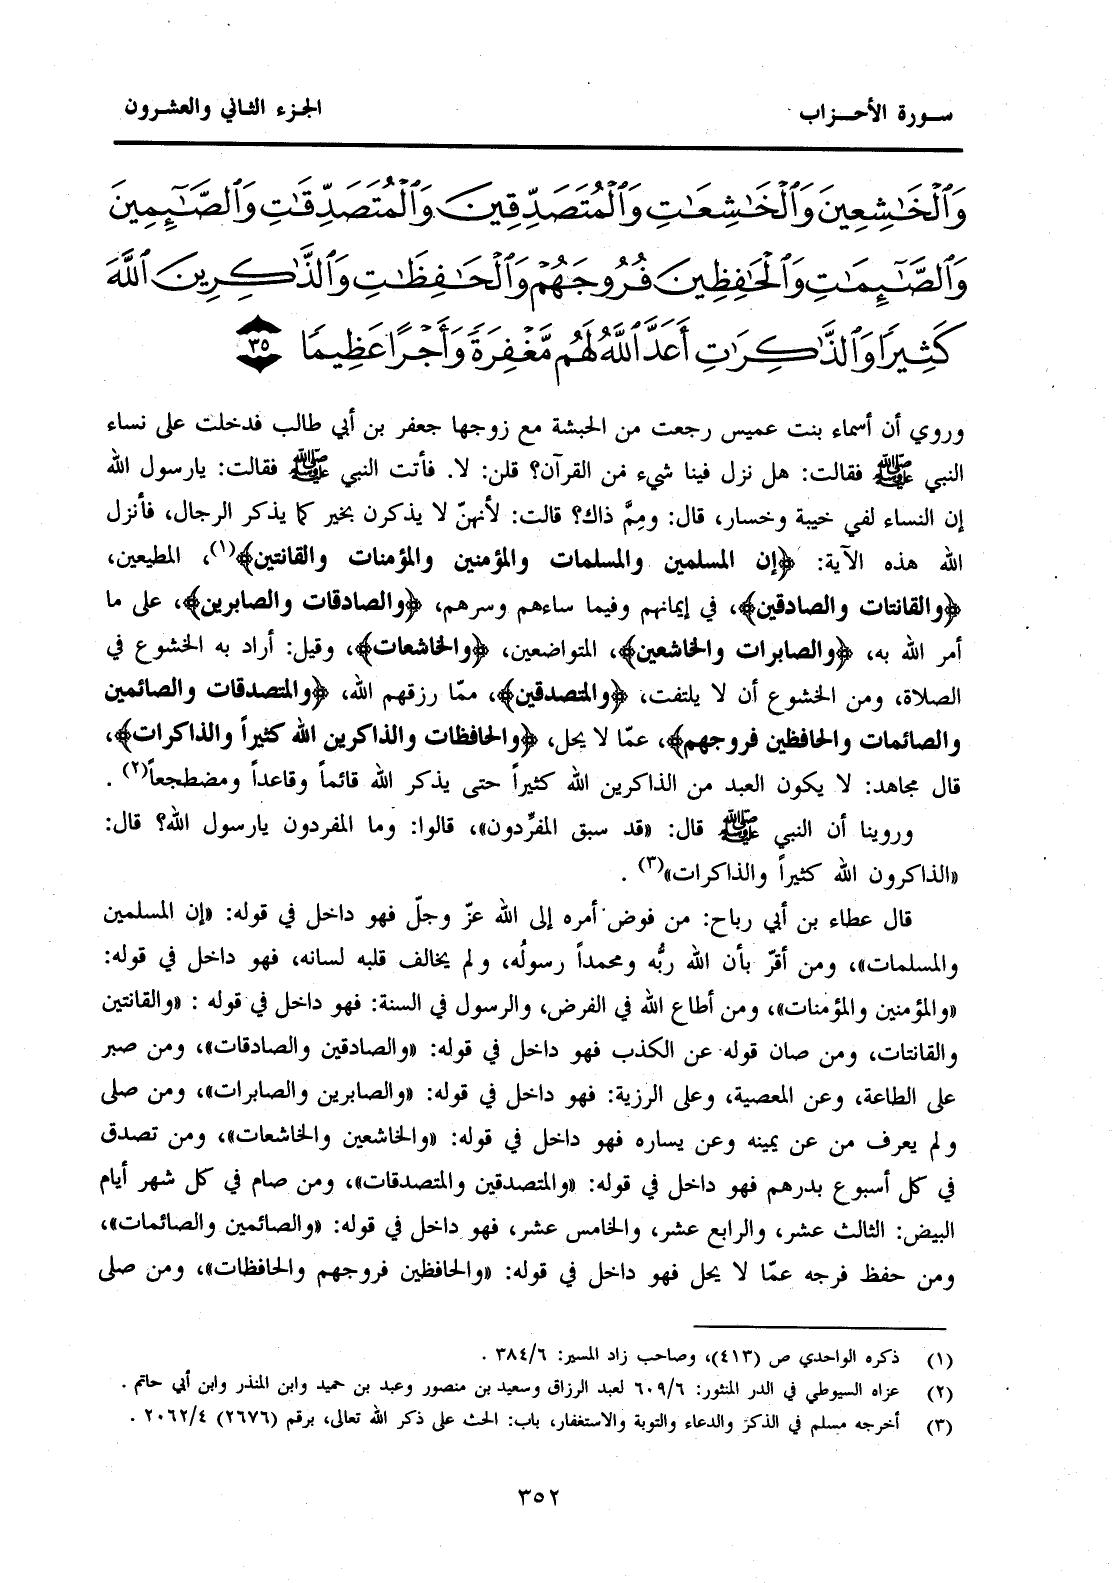 سورة الأحزاب
الجزء الثاني والعشرون
وَٱلْخَٰشِعِينَ وَٱلْخَٰشِعَٰتِ وَٱلْمُتَصَدِّقِينَ وَٱلْمُتَصَدِّقَٰتِ وَٱلصَّٰٓئِمِينَ
وَٱلصَّٰٓئِمَٰتِ وَٱلْحَٰفِظِينَ فُرُوجَهُمْ وَٱلْحَٰفِظَٰتِ وَٱلذَّٰكِرِينَ ٱللَّهَ
كَثِيرًا وَٱلذَّٰكِرَٰتِ أَعَدَّ ٱللَّهُ لَهُم مَّغْفِرَةً وَأَجْرًا عَظِيمًا ٣٥
وروي أن أسماء بنت عميس رجعت من الحبشة مع زوجها جعفر بن أبي طالب فدخلت على نساء
النبي ﷺ فقالت: هل نزل فينا شيء من القرآن؟ قلن: لا. فأتت النبي ﷺ فقالت: يارسول الله
إن النساء لفي خيبة وخسار، قال: ومِمَّ ذاك؟ قالت: لأنهنّ لا يذكرن بخير كما يذكر الرجال، فأنزل
الله هذه الآية: ﴿إن المسلمين والمسلمات والمؤمنين والمؤمنات والقانتين﴾(١)، المطيعين،
﴿والقانتات والصادقين﴾، في إيمانهم وفيما ساءهم وسرهم، ﴿والصادقات والصابرين﴾، على ما
أمر الله به، ﴿والصابرات والخاشعين﴾، المتواضعين، ﴿والخاشعات﴾، وقيل: أراد به الخشوع في
الصلاة، ومن الخشوع أن لا يلتفت، ﴿والمتصدقين﴾، ممّا رزقهم الله، ﴿والمتصدقات والصائمين
والصائمات والحافظين فروجهم﴾، عمّا لا يحل، ﴿والحافظات والذاكرين الله كثيراً والذاكرات﴾،
قال مجاهد: لا يكون العبد من الذاكرين الله كثيراً حتى يذكر الله قائماً وقاعداً ومضطجعاً(٢) .
وروينا أن النبي ﷺ قال: «قد سبق المفرِّدون»، قالوا: وما المفردون يارسول الله؟ قال:
«الذاكرون الله كثيراً والذاكرات»(٣) .
قال عطاء بن أبي رباح: من فوض أمره إلى الله عزّ وجلّ فهو داخل في قوله: «إن المسلمين
والمسلمات»، ومن أقرّ بأن الله ربُّه ومحمداً رسولُه، ولم يخالف قلبه لسانه، فهو داخل في قوله:
«والمؤمنين والمؤمنات»، ومن أطاع الله في الفرض، والرسول في السنة: فهو داخل في قوله : «والقانتين
والقانتات، ومن صان قوله عن الكذب فهو داخل في قوله: «والصادقين والصادقات»، ومن صبر
على الطاعة، وعن المعصية، وعلى الرزية: فهو داخل في قوله: «والصابرين والصابرات»، ومن صلى
ولم يعرف من عن يمينه وعن يساره فهو داخل في قوله: «والخاشعين والخاشعات»، ومن تصدق
في كل أسبوع بدرهم فهو داخل في قوله: «والمتصدقين والمتصدقات»، ومن صام في كل شهر أيام
البيض: الثالث عشر، والرابع عشر، والخامس عشر، فهو داخل في قوله: «والصائمين والصائمات»،
ومن حفظ فرجه عمّا لا يحل فهو داخل في قوله: «والحافظين فروجهم والحافظات»، ومن صلى
(١) ذكره الواحدي ص (٤١٣)، وصاحب زاد المسير: ٣٨٤/٦ .
(٢) عزاه السيوطي في الدر المنثور: ٦٠٩/٦ لعبد الرزاق وسعيد بن منصور وعبد بن حميد وابن المنذر وابن أبي حاتم .
(٣) أخرجه مسلم في الذكر والدعاء والتوبة والاستغفار، باب: الحث على ذكر الله تعالى، برقم (٢٦٧٦) ٢٠٦٢/٤ .
٣٥٢